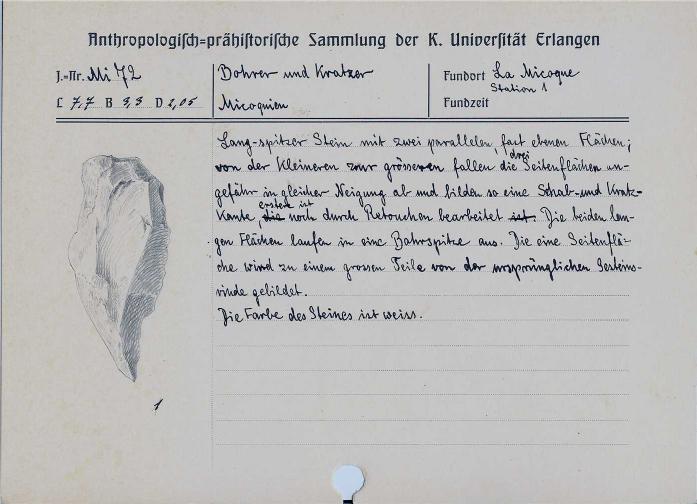 Anthropologisch-prähistorische Sammlung der K. Universität Erlangen
J.-Nr. Mi 72 Bohrer und Kratzer Fundort La Micoque
Station 1
L 7,7 B 3,3 D 2,05 Micoquien Fundzeit
Lang-spitzer Stein mit zwei parallelen, fast ebenen Flächen;
von der kleineren zur grösseren fallen die drei Seitenflächen un-
gefähr in gleicher Neigung ab und bilden so eine Schab- und Kratz-
kante, die erstere ist noch durch Retouchen bearbeitet ist. Die beiden lan-
gen Flächen laufen in eine Bohrspitze aus. Die eine Seitenflä-
che wird zu einem grossen Teile von der ursprünglichen Gesteins-
rinde gebildet.
Die Farbe des Steines ist weiss.
1